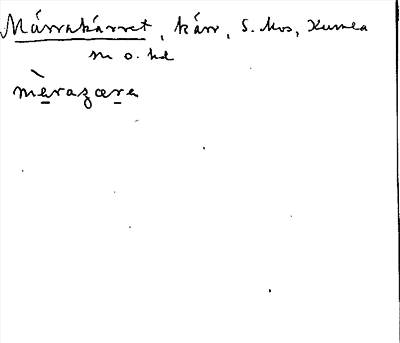 Márrakárret, kärr, S. Mos, Kumla
sn o. hd
mèrazæra